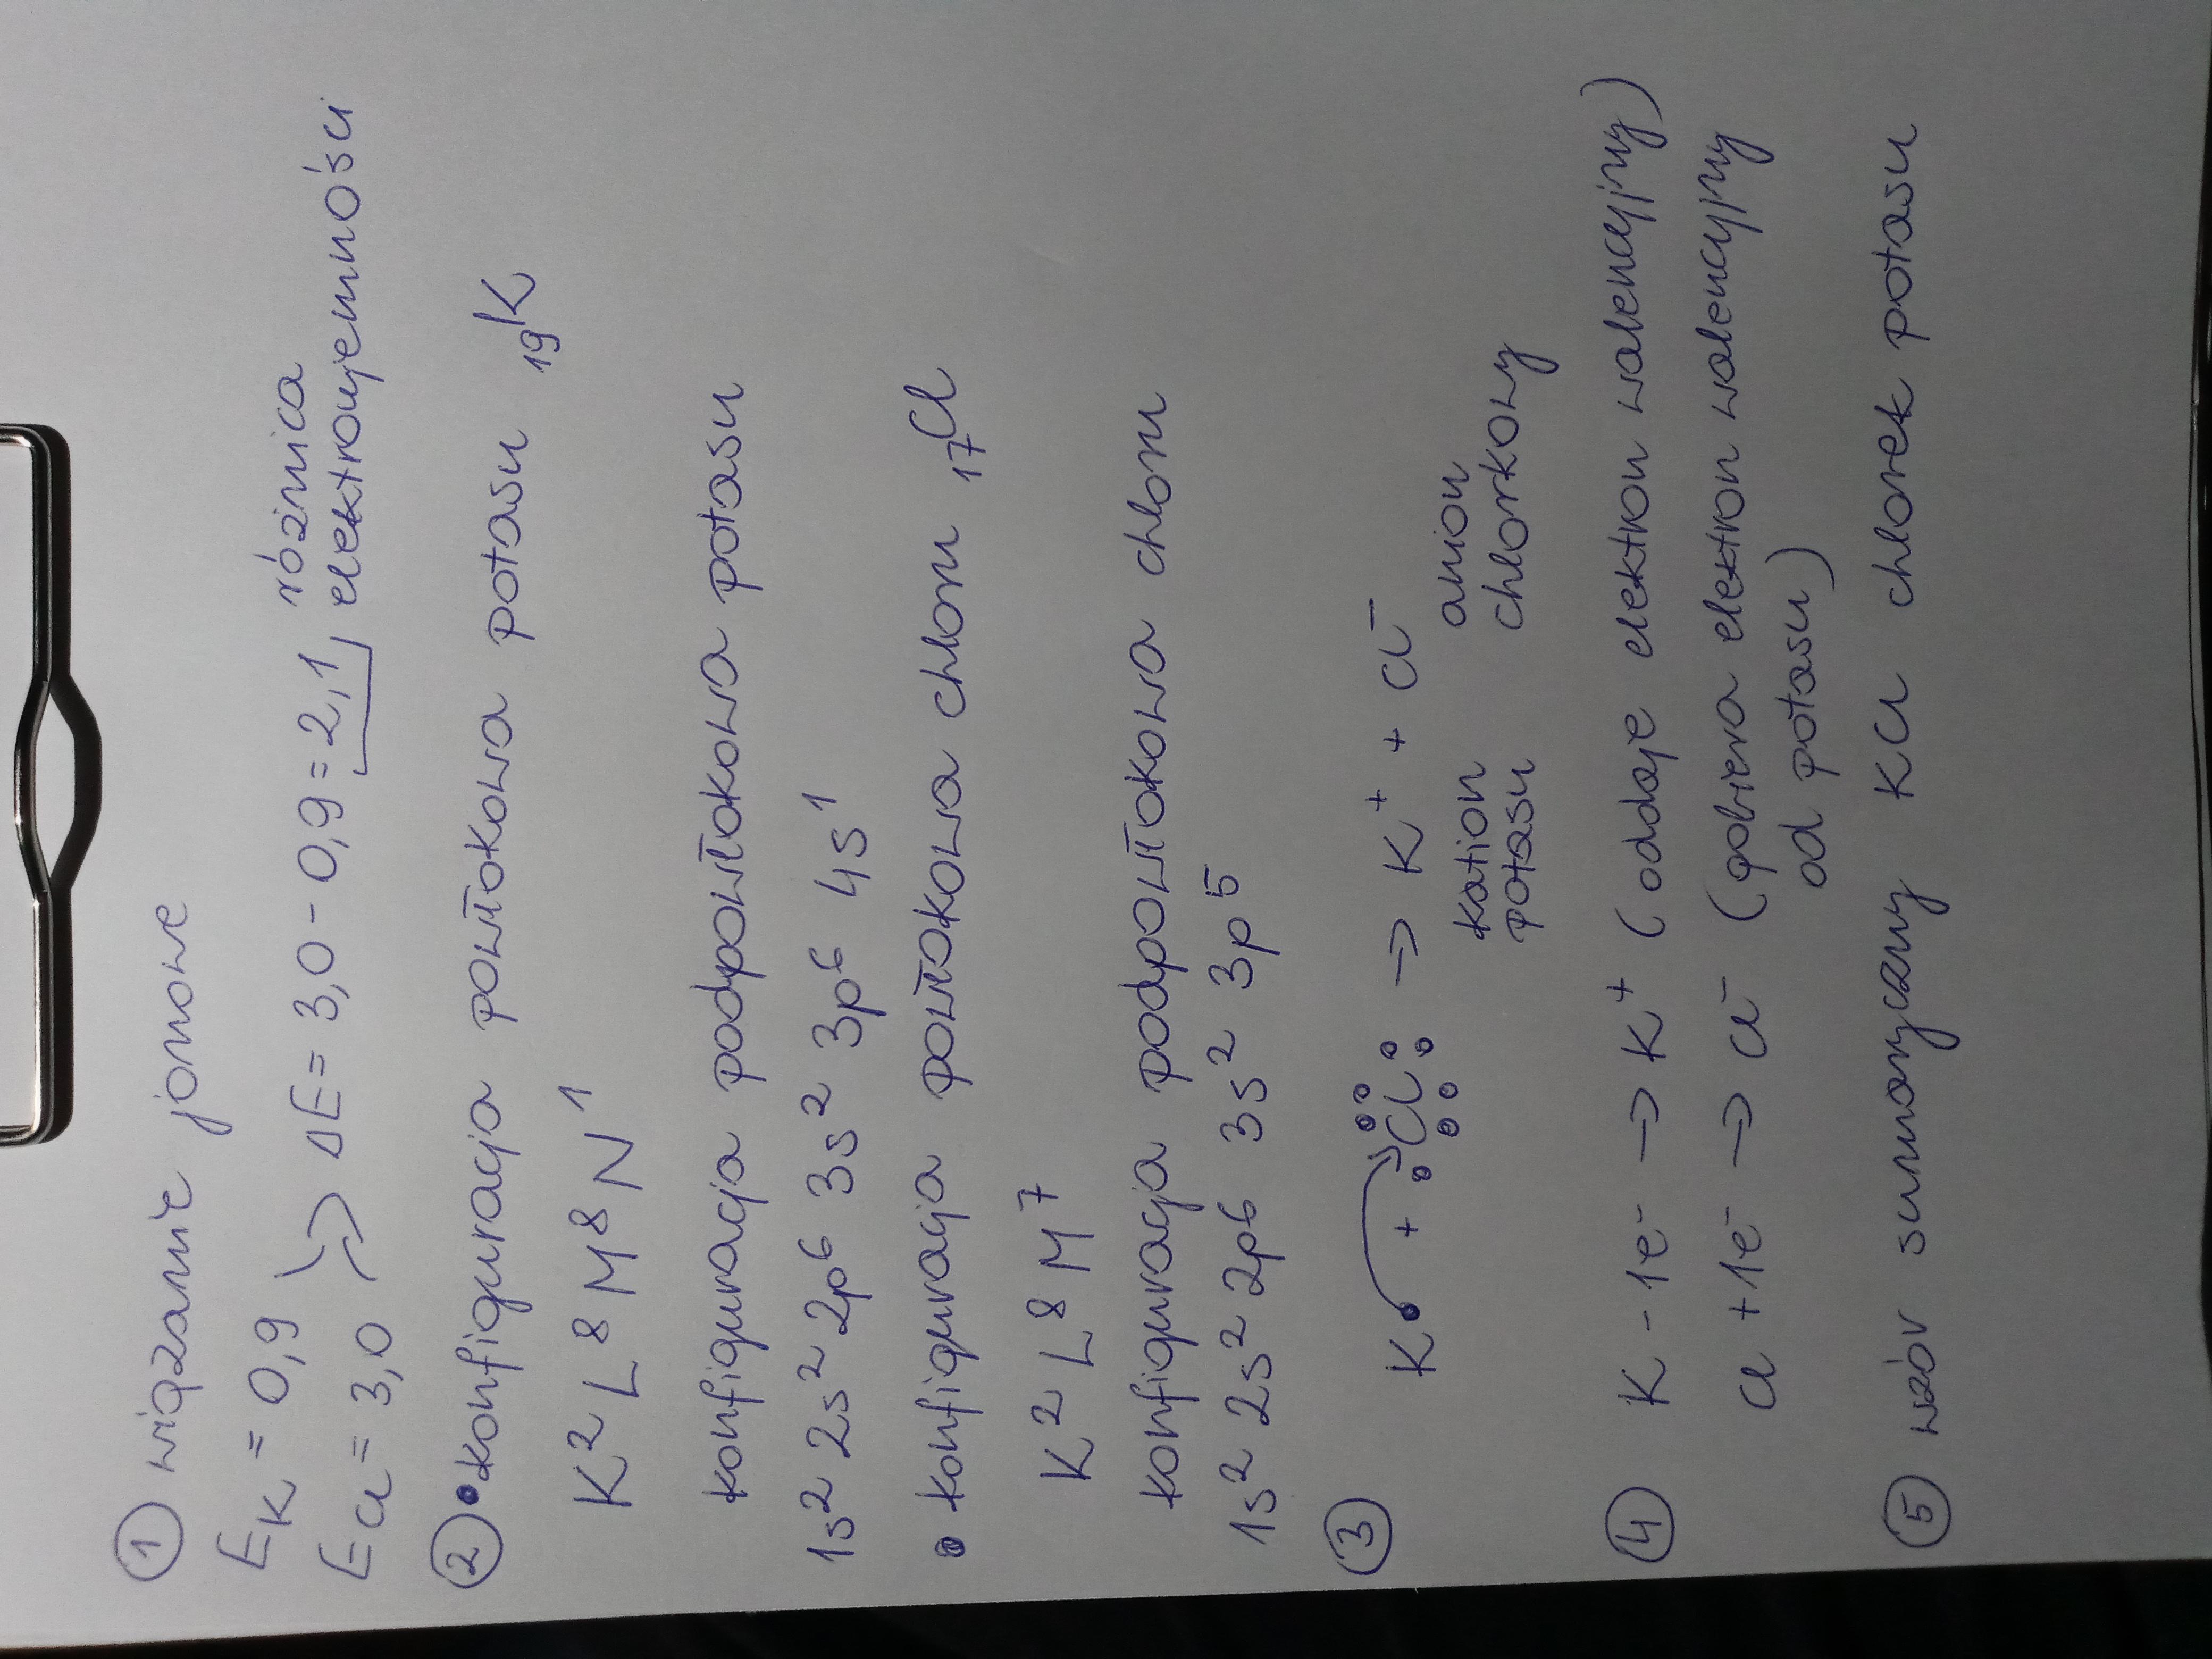 ① wiązanie jonowe
E_K = 0,9
E_Cl = 3,0 → ΔE = 3,0 - 0,9 = 2,1 różnica elektroujemności
② • konfiguracja powłokowa potasu ₁₉K
K² L⁸ M⁸ N¹
konfiguracja podpowłokowa potasu
1s² 2s² 2p⁶ 3s² 3p⁶ 4s¹
• konfiguracja powłokowa chloru ₁₇Cl
K² L⁸ M⁷
konfiguracja podpowłokowa chloru
1s² 2s² 2p⁶ 3s² 3p⁵
③ K• + Cl → K⁺ + Cl⁻
kation potasu
anion chlorkowy
④ K - 1e⁻ → K⁺ (oddaje elektron walencyjny)
Cl + 1e⁻ → Cl⁻ (pobiera elektron walencyjny
od potasu)
⑤ wzór sumaryczny KCl chlorek potasu